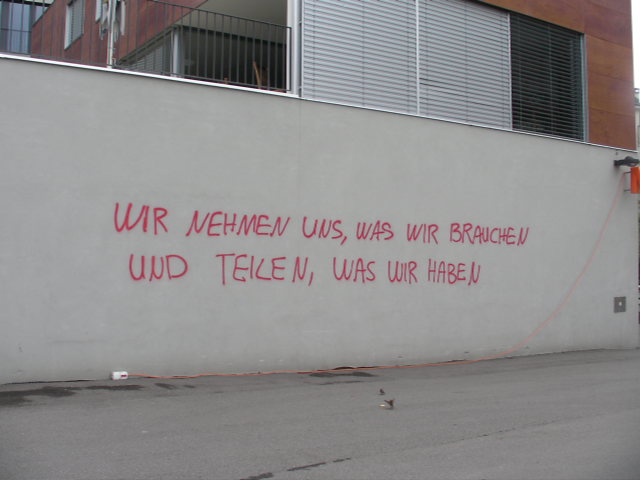 WIR NEHMEN UNS, WAS WIR BRAUCHEN
UND TEILEN, WAS WIR HABEN